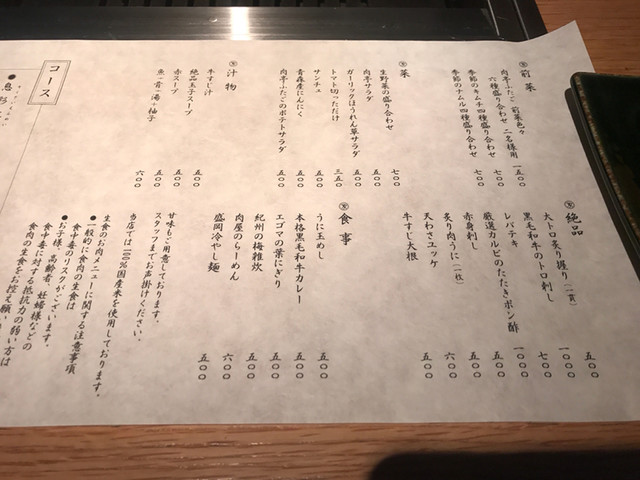 前菜
肉亭ふたご 前菜色々
六種盛り合わせ 二名様用 一五〇〇
季節のキムチ四種盛り合わせ 七〇〇
季節のナムル四種盛り合わせ 七〇〇
菜
生野菜の盛り合わせ 七〇〇
肉亭サラダ 五〇〇
ガーリックほうれん草サラダ 五〇〇
トマト切っただけ 三五〇
サンチュ 五〇〇
青森産にんにく 五〇〇
肉亭ふたごのポテトサラダ 五〇〇
汁物
牛すじ汁 五〇〇
絶品玉子スープ 五〇〇
赤スープ 五〇〇
魚・昔・湯・柚子 六〇〇
コース
絶品
大トロ炙り握り(一貫) 五〇〇
黒毛和牛のトロ刺し 一〇〇〇
レバテキ 七〇〇
厳選カルビのたたきポン酢 一〇〇〇
赤身刺し 五〇〇
炙り肉うに(一枚) 六〇〇
天わさユッケ
牛すじ大根 五〇〇
食事
うに玉めし 五〇〇
本格黒毛和牛カレー 五〇〇
エゴマの葉にぎり 五〇〇
紀州の梅雑炊 五〇〇
肉屋のらーめん 六〇〇
盛岡冷やし麺 五〇〇
甘味もご用意しております。
スタッフまでお声掛けください。
当店では100%国産米を使用しております。
生食のお肉メニューに関する注意事項
●一般的に食肉の生食は
食中毒のリスクがございます。
●お子様、高齢者、妊婦様などの
食中毒に対する抵抗力の弱い方は
食肉の生食をお控え願い